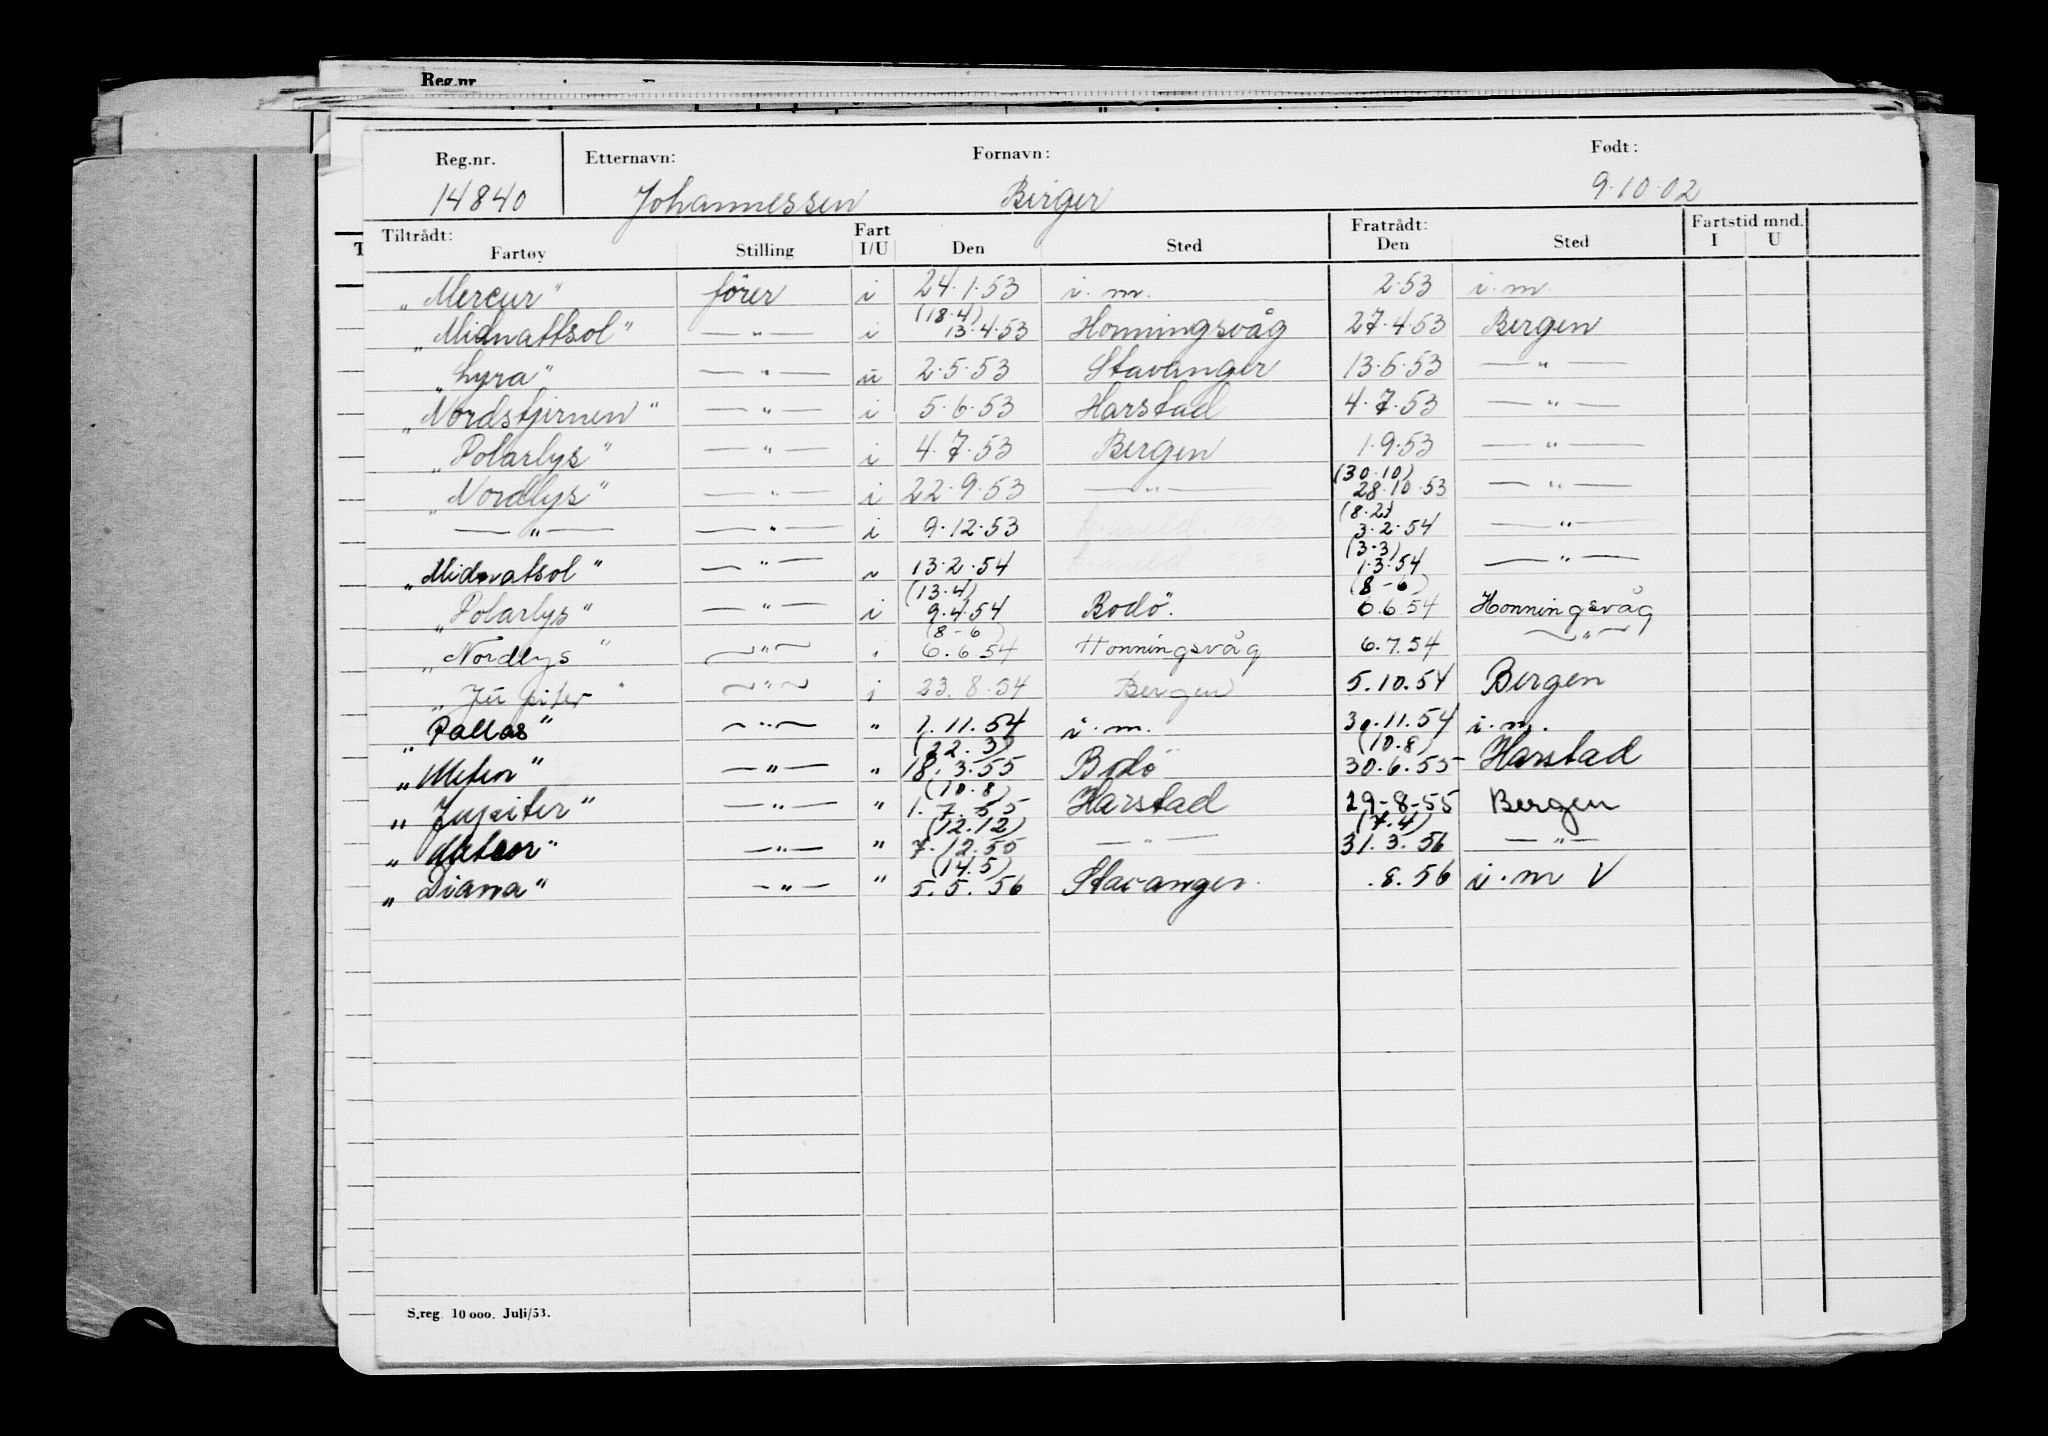 Reg.nr.
Reg.nr. Etternavn: Fornavn: Født:
14840 Johannessen Birger 9.10.02
Tiltrådt: Fart Fratrådt: Fartstid mnd.
Fartøy Stilling I/U Den Sted Den Sted I U
„Mercur" förer i 24.1.53 i.m. 2.53 i.m.
„Midnattsol" —"— i (18.4) 13.4.53 Honningsvåg 27.4.53 Bergen
„Lyra" —"— u 2.5.53 Stavanger 13.5.53 —"—
„Nordstjernen" —"— i 5.6.53 Harstad 4.7.53 —"—
„Polarlys" —"— i 4.7.53 Bergen 1.9.53 —"—
„Nordlys" —"— i 22.9.53 —"— (30.10) 28.10.53 —"—
—"— —"— i 9.12.53 (8.2) 3.2.54 —"—
„Midnatsol" —"— 13.2.54 (3.3) 1.3.54 —"—
„Polarlys" —"— i (13.4) 9.4.54 Bodö. (8-6) 6.6.54 Honningsvåg
„Nordlys" —"— i (8-6) 6.6.54 Honningsvåg 6.7.54 —"—
„Jupiter" —"— i 23.8.54 Bergen 5.10.54 Bergen
„Pallas" —"— " 1.11.54 i.m. 30.11.54 i.m.
„Meteor" —"— " (22.3) 18.3.55 Bodö (10.8) 30.6.55 Harstad
„Jupiter" —"— " (10.8) 1.7.55 Harstad 29-8-55 Bergen
„Meteor" —"— " (12.12) 7.12.55 —"— (7.4) 31.3.56 —"—
„Diana" —"— " (14.5) 5.5.56 Stavanger .8.56 i.m V
S.reg. 10 000. Juli/53.